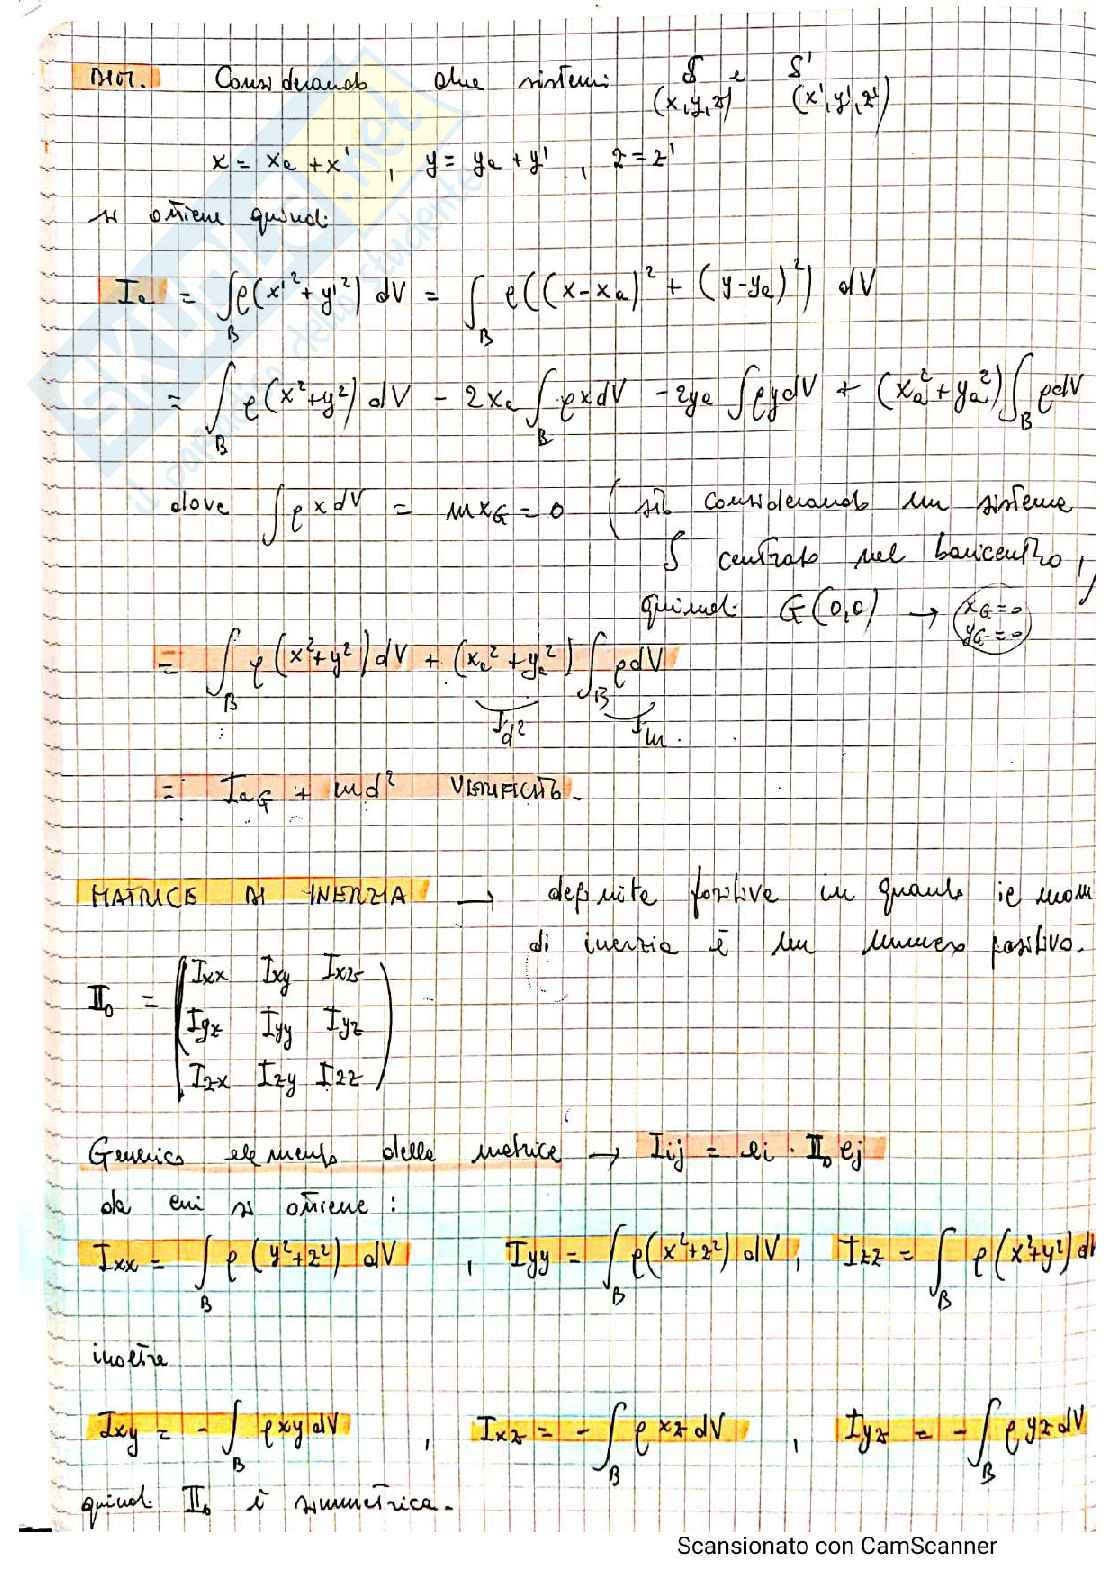 DIM. Considerando due sistemi S e S'
(x,y,z) (x',y',z')
x = xa + x' , y = ya + y' , z = z'
si ottiene quindi
Ia = ∫B ρ(x'² + y'²) dV = ∫B ρ((x-xa)² + (y-ya)²) dV
= ∫B ρ(x²+y²) dV - 2xa ∫B ρxdV - 2ya ∫ρydV + (xa²+ya²) ∫B ρdV
dove ∫ρxdV = mxG = 0 (sto considerando un sistema
S centrato nel baricentro,
quindi G(0,0) → (xG=0
yG=0)
= ∫B ρ(x²+y²)dV + (xa²+ya²) ∫B ρdV
d² m.
= IaG + md² VERIFICATO.
MATRICE DI INERZIA → definita positiva in quanto il mom
di inerzia è un numero positivo.
𝕀o = (Ixx Ixy Ixz
Iyx Iyy Iyz
Izx Izy Izz)
Generico elemento della matrice → Iij = ei · 𝕀o ej
da cui si ottiene :
Ixx = ∫B ρ(y²+z²) dV , Iyy = ∫B ρ(x²+z²) dV , Izz = ∫B ρ(x²+y²) dV
inoltre
Ixy = - ∫B ρxydV , Ixz = - ∫B ρxzdV , Iyz = - ∫B ρyzdV
quindi 𝕀o è simmetrica.
Scansionato con CamScanner